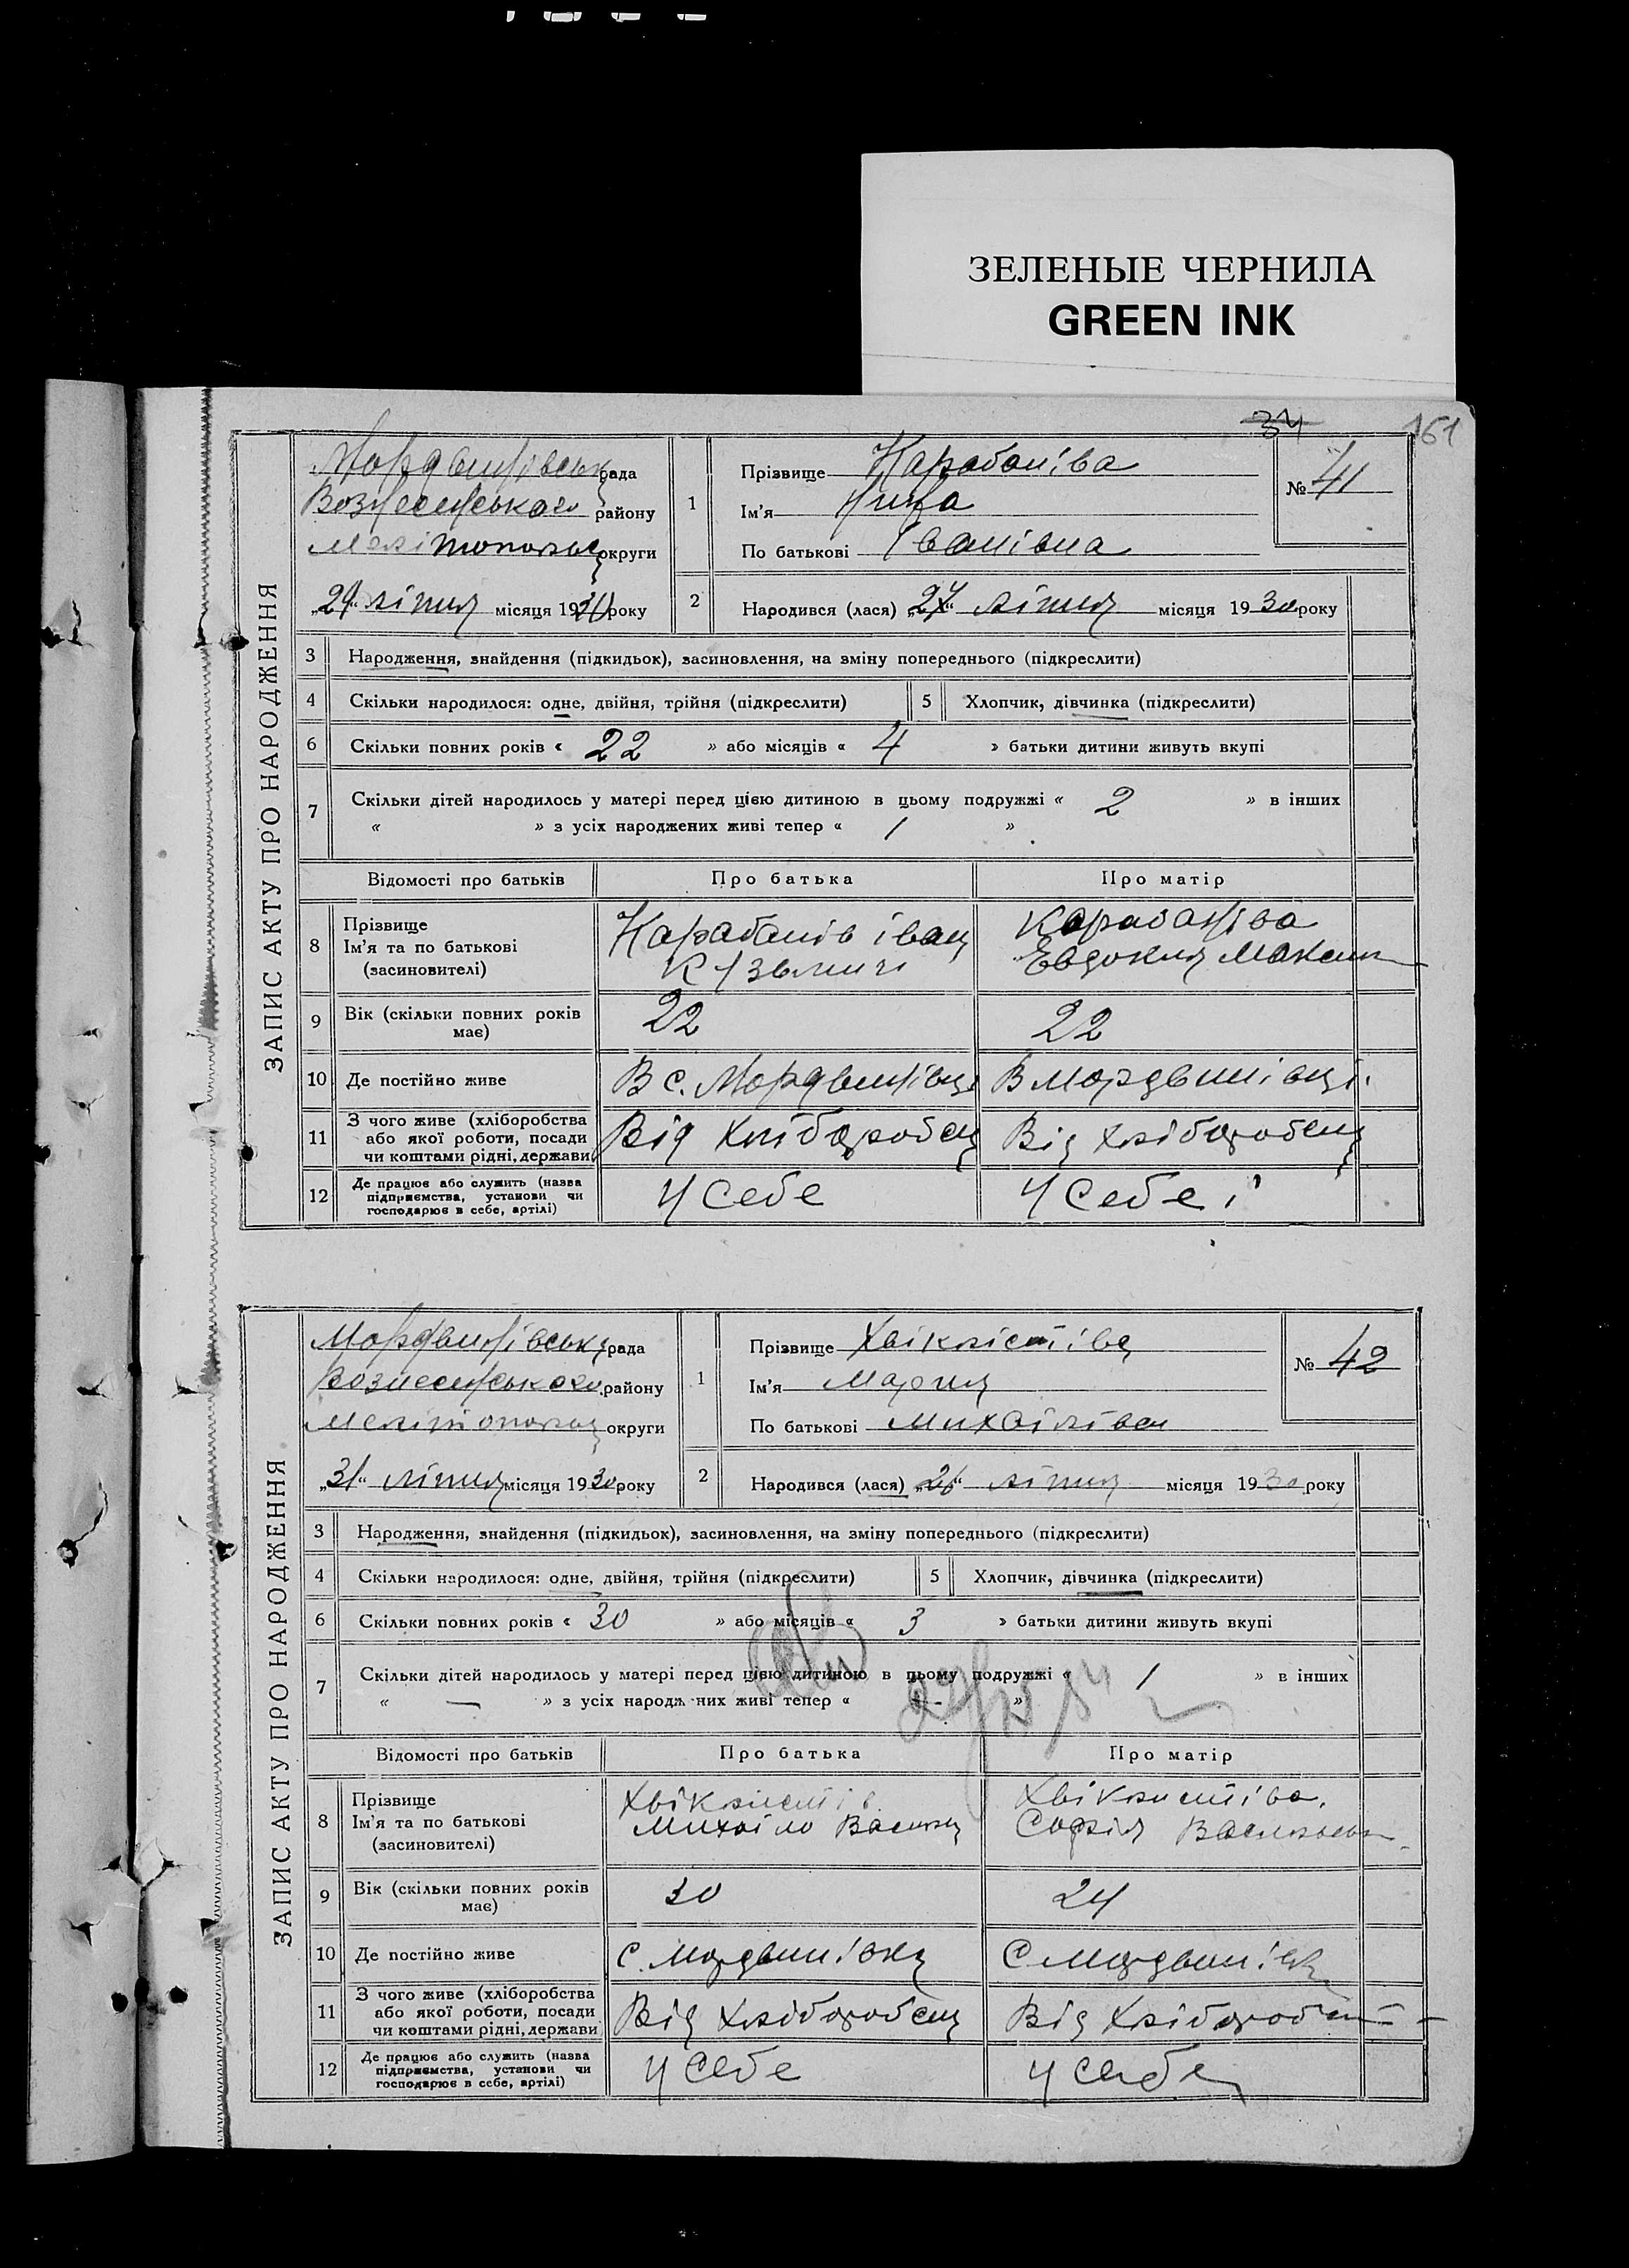 ЗЕЛЕНЫЕ ЧЕРНИЛА
GREEN INK
34
161
ЗАПИС АКТУ ПРО НАРОДЖЕННЯ
Мордвинівська рада
Вознесенського району
Мелітопольц округи
„29“ липня місяця 1930 року
1
Прізвище Карабаніва
Ім'я Ніна
По батькові Іванівна
№ 41
2
Народився (лася) „ “ липня місяця 1930 року
3 Народження, знайдення (підкидьок), засиновлення, на зміну попереднього (підкреслити)
4 Скільки народилося: одне, двійня, трійня (підкреслити) 5 Хлопчик, дівчинка (підкреслити)
6 Скільки повних років « 22 » або місяців « 4 » батьки дитини живуть вкупі
7 Скільки дітей народилось у матері перед цією дитиною в цьому подружжі « 2 » в інших
« » з усіх народжених живі тепер « 1 »
Відомості про батьків Про батька Про матір
8 Прізвище
Ім'я та по батькові
(засиновителі)
Карабанів Іван
Кузьмич
Карабаніва
Евдокия Максим
9 Вік (скільки повних років має) 22 22
10 Де постійно живе В с. Мордвинівці В Мордвинівці
11 З чого живе (хліборобства
або якої роботи, посади
чи коштами рідні, держави
Від хліборобец Від хліборобец
12 Де працює або служить (назва
підприємства, установи чи
господарює в себе, артілі)
У себе У себе
ЗАПИС АКТУ ПРО НАРОДЖЕННЯ
Мордвинівська рада
Вознесенського району
Мелітопольц округи
„31“ липня місяця 1930 року
1
Прізвище Хвіклістіва
Ім'я Мария
По батькові Михайлівна
№ 42
2
Народився (лася) „ “ липня місяця 1930 року
3 Народження, знайдення (підкидьок), засиновлення, на зміну попереднього (підкреслити)
4 Скільки народилося: одне, двійня, трійня (підкреслити) 5 Хлопчик, дівчинка (підкреслити)
6 Скільки повних років « 30 » або місяців « 3 » батьки дитини живуть вкупі
7 Скільки дітей народилось у матері перед цією дитиною в цьому подружжі « 1 » в інших
« — » з усіх народжених живі тепер « - »
Відомості про батьків Про батька Про матір
8 Прізвище
Ім'я та по батькові
(засиновителі)
Хвіклистів
Михайло Васильц
Хвіклистіва.
Софія Васильевн
9 Вік (скільки повних років має) 30 24
10 Де постійно живе с. Мордвинівка с Мордвинівка
11 З чого живе (хліборобства
або якої роботи, посади
чи коштами рідні, держави
Від хліборобец Від хліборобец
12 Де працює або служить (назва
підприємства, установи чи
господарює в себе, артілі)
У себе У себе